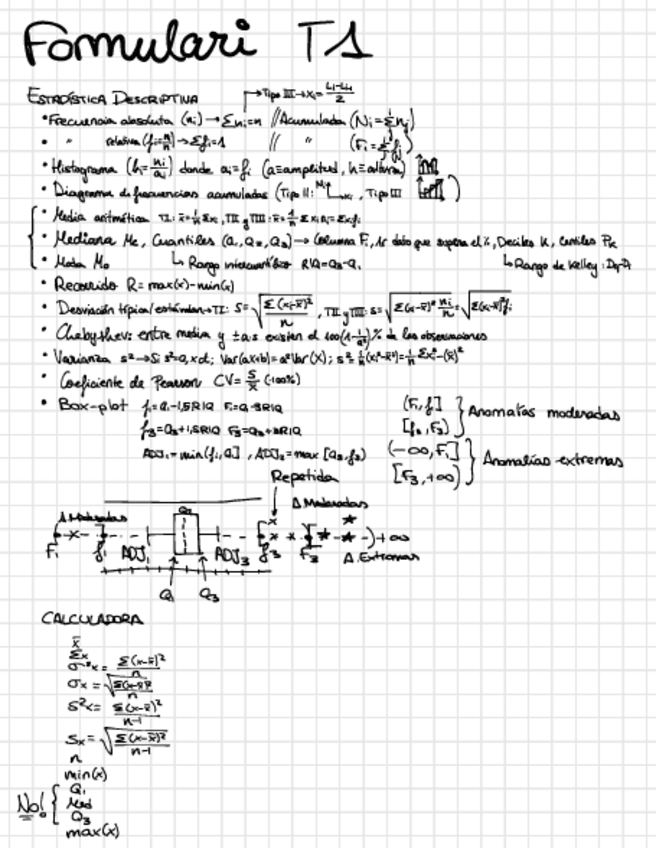 Formulari T1
ESTADÍSTICA DESCRIPTIVA → Tipo III → xᵢ=
• Frecuencia absoluta (nᵢ) → Σnᵢ=n // Acumulada (Nᵢ=Σnⱼ)
• " relativa (fᵢ=nᵢ/n) → Σfᵢ=1 // " (Fᵢ=Σfⱼ)
• Histograma (hᵢ=nᵢ/aᵢ) donde aᵢ=fᵢ (a≡amplitud, h≡altura)
• Diagrama de frecuencias acumuladas (Tipo II: Nᵢ xᵢ, Tipo III )
• Media aritmética TI: x̄=1/n Σxᵢ, TII y TIII: x̄=1/n Σxᵢnᵢ=Σxᵢfᵢ
• Mediana Me, Cuantiles (Q₁, Q₂, Q₃) → Columna Fᵢ, 1r dato que supera el %, Deciles K, Centiles Pₖ
• Moda Mo ↳ Rango intercuartílico RIQ=Q₃-Q₁ ↳ Rango de Kelley:
• Recorrido R=max(x)-min(x)
• Desviación típica/estándar → TI: S=√(Σ(xᵢ-x̄)²/n), TII y TIII: S=√(Σ(xᵢ-x̄)² nᵢ/n)=√(Σ(xᵢ-x̄)²fᵢ)
• Chebythev: entre media y ±a·s existen el 100(1-1/a²)% de las observaciones
• Varianza s² → Si s²=0, x ct; Var(ax+b)=a²Var(x); s²=1/n(xᵢ²-x̄²)=1/n Σxᵢ²-(x̄)²
• Coeficiente de Pearson CV=S/x̄ (·100%)
• Box-plot f₁=Q₁-1,5RIQ F₁=Q₁-3RIQ
f₃=Q₃+1,5RIQ F₃=Q₃+3RIQ
ADJ₁=min(f₁,Q₁], ADJ₃=max [Q₃,f₃)
(F₁,f₁]
[f₃,F₃) } Anomalías moderadas
(-∞,F₁]
[F₃,+∞) } Anomalías extremas
Repetida
A.Moderadas Q₂ A.Moderadas
F₁ f₁ ADJ₁ ADJ₃ f₃ F₃ +∞
A.Extremas
Q₁ Q₃
CALCULADORA
x̄
Σx
σ²x= Σ(x-x̄)²/n
σx=√(Σ(x-x̄)²/n)
s²x= Σ(x-x̄)²/n-1
Sx=√(Σ(x-x̄)²/n-1)
n
min(x)
No! { Q₁
Med
Q₃
max(x)